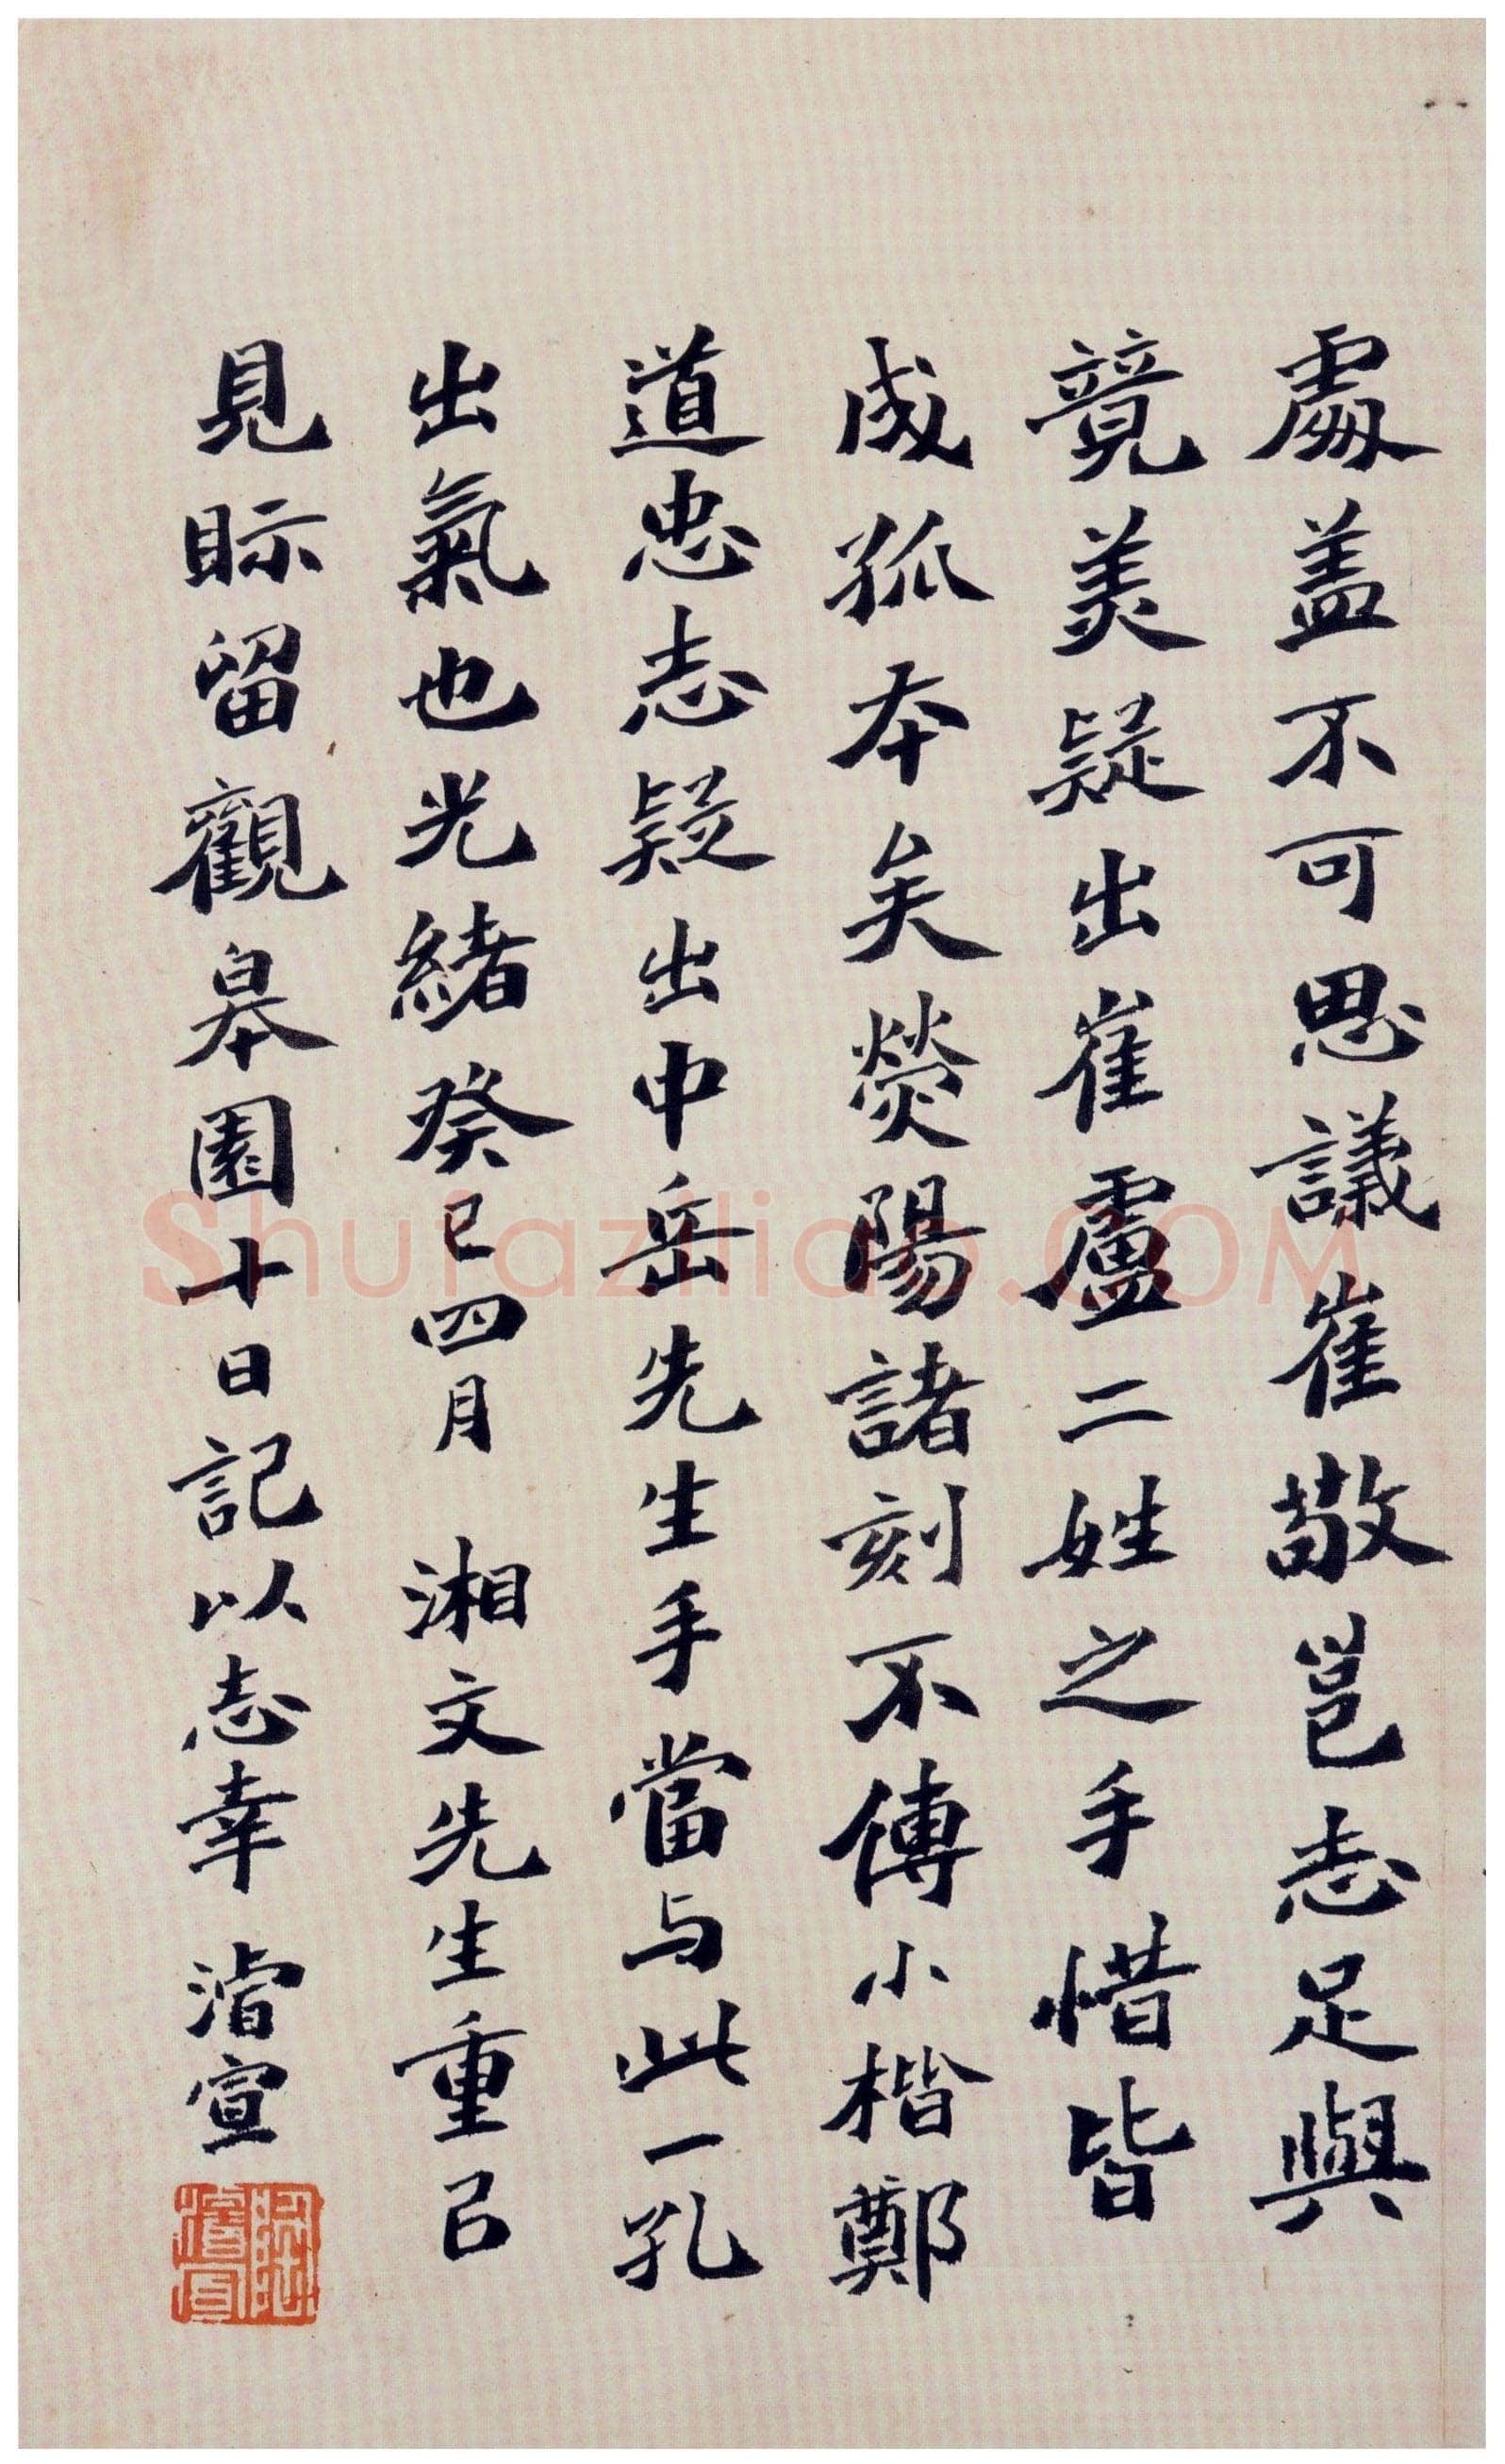 處盖不可思議崔敬邕志足與
競美疑出崔盧二姓之手惜皆
成孤本矣熒陽諸刻不傳小楷鄭
道忠志疑出中岳先生手當与此一孔
出氣也光緒癸巳四月 湘文先生重已
見眎留觀皋園十日記以志幸 濬宣
Shufaziliao.COM